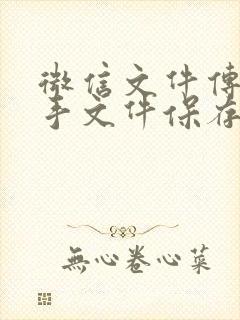 微信文件傳
手文件保存
無心卷心菜